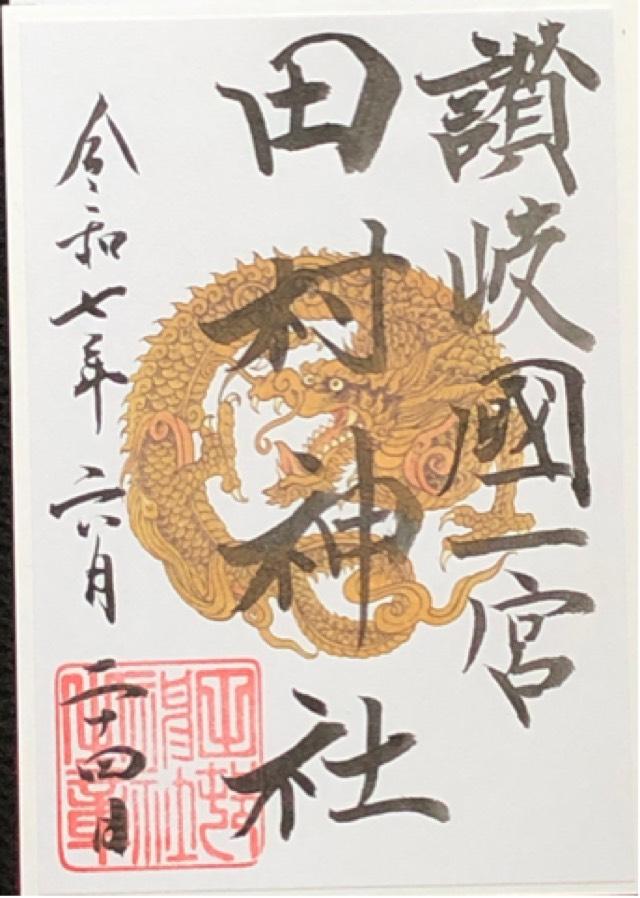 讃岐國一宮
田村神社
令和七年六月二十四日